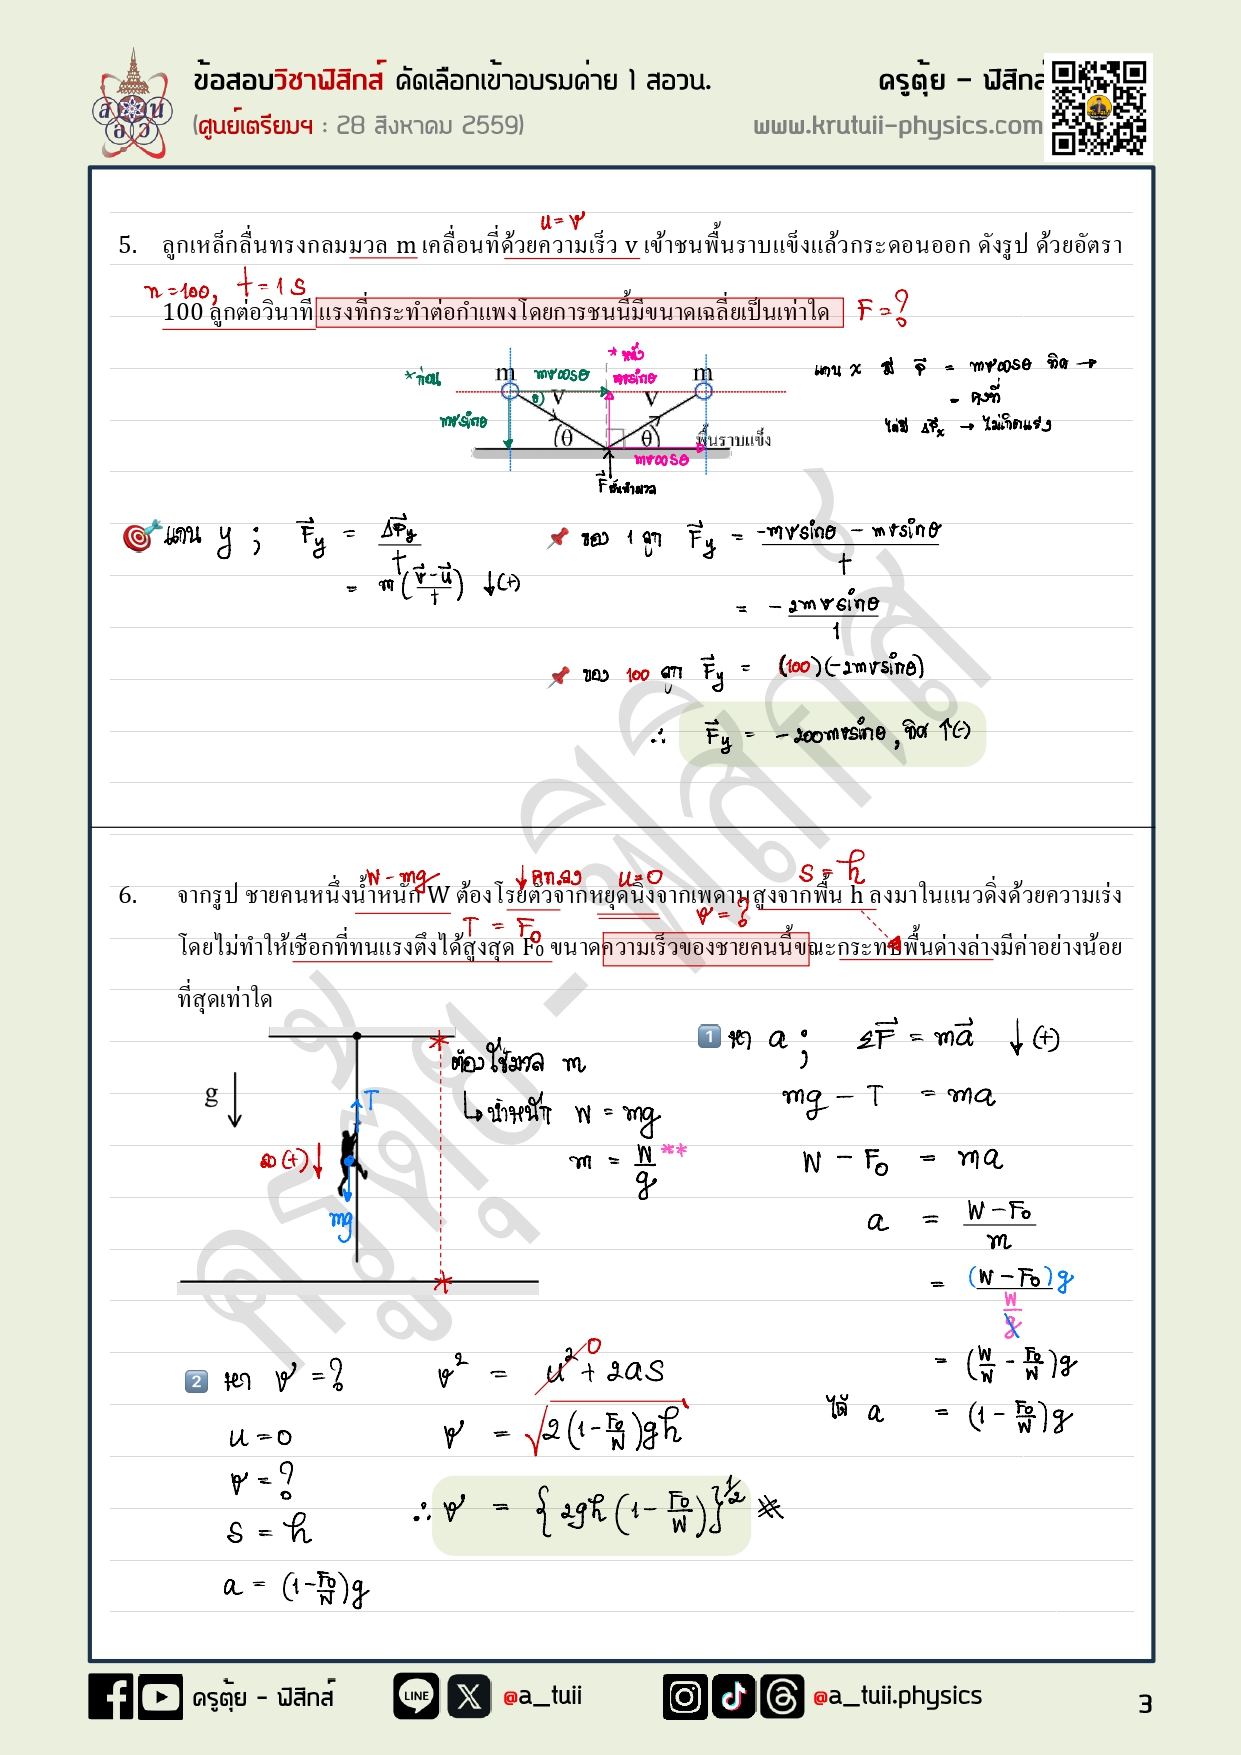 ข้อสอบวิชาฟิสิกส์ คัดเลือกเข้าอบรมค่าย 1 สอวน.
ครูตุ้ย – ฟิสิกส์
(ศูนย์เตรียมฯ : 28 สิงหาคม 2559)
www.krutuii-physics.com
u = v
5. ลูกเหล็กลื่นทรงกลมมวล m เคลื่อนที่ด้วยความเร็ว v เข้าชนพื้นราบแข็งแล้วกระดอนออก ดังรูป ด้วยอัตรา
n = 100, t = 1 s
100 ลูกต่อวินาที แรงที่กระทำต่อกำแพงโดยการชนนี้มีขนาดเฉลี่ยเป็นเท่าใด F = ?
*ก่อน m mvcosθ *หลัง mvsinθ m
แกน x มี P⃗ = mvcosθ ทิศ →
= คงที่
ไม่มี ΔP⃗x → ไม่เกิดแรง
mvsinθ θ) v v
(θ θ) พื้นราบแข็ง
mvcosθ
F⃗ พื้นทำมวล
แกน y ; F⃗y = ΔP⃗y / t
= m(v⃗ - u⃗ / t) ↓(+)
ของ 1 ลูก F⃗y = -mvsinθ - mvsinθ / t
= - 2mvsinθ / 1
ของ 100 ลูก F⃗y = (100)(-2mvsinθ)
∴ F⃗y = -200mvsinθ , ทิศ ↑(-)
W = mg ↓ คท.ลง u = 0 s = h
6. จากรูป ชายคนหนึ่งน้ำหนัก W ต้องโรยตัวจากหยุดนิ่งจากเพดานสูงจากพื้น h ลงมาในแนวดิ่งด้วยความเร่ง
T = F₀ v = ?
โดยไม่ทำให้เชือกที่ทนแรงตึงได้สูงสุด F₀ ขนาดความเร็วของชายคนนี้ขณะกระทบพื้นด่างล่างมีค่าอย่างน้อย
ที่สุดเท่าใด
g
T
a (+) ↓
mg
ต้องใช้มวล m
↳ น้ำหนัก W = mg
m = W / g **
1 หา a ; ΣF⃗ = ma⃗ ↓ (+)
mg - T = ma
W - F₀ = ma
a = W - F₀ / m
= (W - F₀)g / W / g
= (W/W - F₀/W)g
ได้ a = (1 - F₀/W)g
2 หา v = ?
u = 0
v = ?
s = h
a = (1 - F₀/W)g
v² = u² + 2as
0
v = √2(1 - F₀/W)gh
∴ v = {2gh(1 - F₀/W)}^1/2 ※
ครูตุ้ย – ฟิสิกส์
LINE
@a_tuii
@a_tuii.physics
3